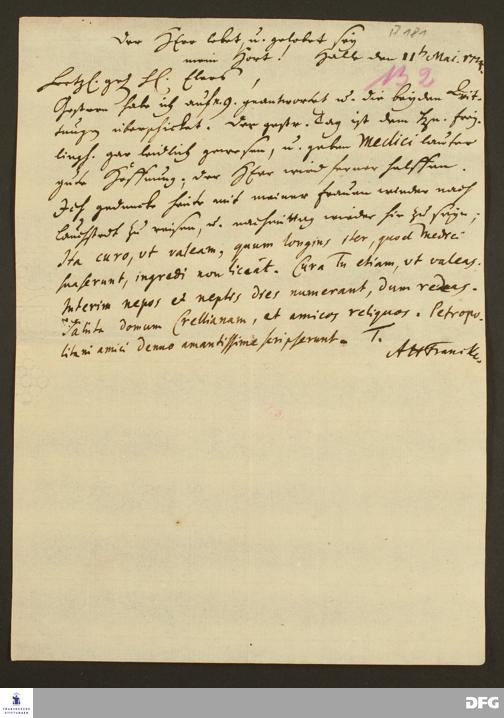 D 181
Der Herr lebet, u. gelobet sey
mein Hort! Halle den 11t Mai. 1724.
132
Hertzl. gel. H. Elers,
Gestern habe ich auf n. 9. geantwortet u. die beyden
überschicket. Der gestr. Tag ist dem Hn. Frey-
lingh. gar leidlich gewesen, u. geben Medici lauter
gute Hoffnung; der Herr wird ferner helffen.
Ich gedencke heute mit meiner Frauen wieder nach
Lauchstedt zu reisen, u. nachmittag wieder hier zu seyn;
Ita curo, ut valeam, quum longius iter, quod Medici
suaserunt, ingredi non liceat. Cura Tu etiam, ut valeas.
Interim nepos et neptis dies numerant, dum redeas.
Saluta domum Crellianam, et amicos reliquos. Petropo-
litani amici denuo amantissime scripserunt. T.
AHFrancke.
FRANCKESCHE STIFTUNGEN
DFG